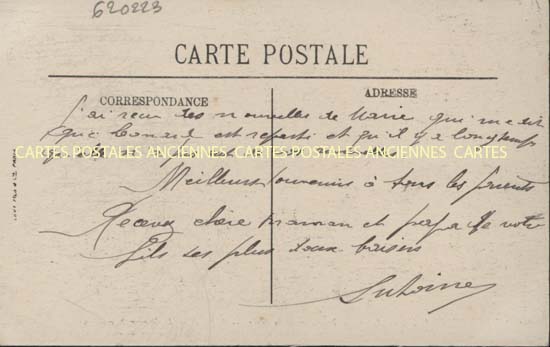 620223
CARTE POSTALE
CORRESPONDANCE
ADRESSE
j'ai reçu des nouvelles de Marie qui me dit
que Leonard est reparti et qu'il y a longtemps
CARTES POSTALES ANCIENNES CARTES POSTALES ANCIENNES CARTES
Meilleurs souvenirs à tous les parents
Recevez chère maman et papa de votre
fils ses plus doux baisers
Antoine